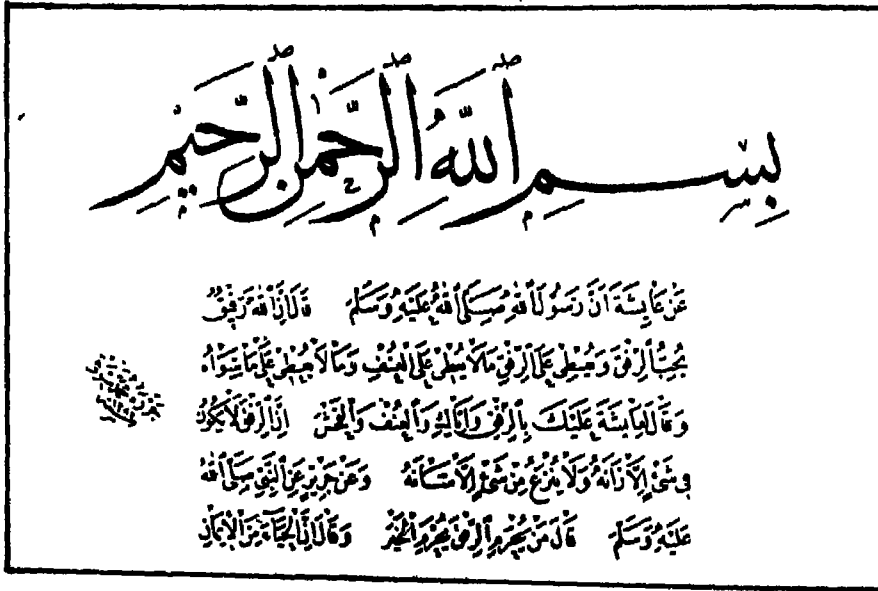 بِسْمِ ٱللَّهِ ٱلرَّحْمَٰنِ ٱلرَّحِيمِ
عَنْ عَائِشَةَ أَنَّ رَسُولَ ٱللَّهِ صَلَّى ٱللَّهُ عَلَيْهِ وَسَلَّمَ قَالَ إِنَّ ٱللَّهَ رَفِيقٌ
يُحِبُّ ٱلرِّفْقَ وَيُعْطِي عَلَى ٱلرِّفْقِ مَا لَا يُعْطِي عَلَى ٱلْعُنْفِ وَمَا لَا يُعْطِي عَلَى مَا سِوَاهُ
وَقَالَ لِعَائِشَةَ عَلَيْكَ بِالرِّفْقِ وَإِيَّاكِ وَٱلْعُنْفَ وَٱلْفُحْشَ إِنَّ ٱلرِّفْقَ لَا يَكُونُ
فِي شَيْءٍ إِلَّا زَانَهُ وَلَا يُنْزَعُ مِنْ شَيْءٍ إِلَّا شَانَهُ وَعَنْ جَرِيرٍ عَنِ ٱلنَّبِيِّ صَلَّى ٱللَّهُ
عَلَيْهِ وَسَلَّمَ قَالَ مَنْ يُحْرَمِ ٱلرِّفْقَ يُحْرَمِ ٱلْخَيْرَ وَقَالَ إِنَّ ٱلْحَيَاءَ مِنَ ٱلْإِيمَانِ